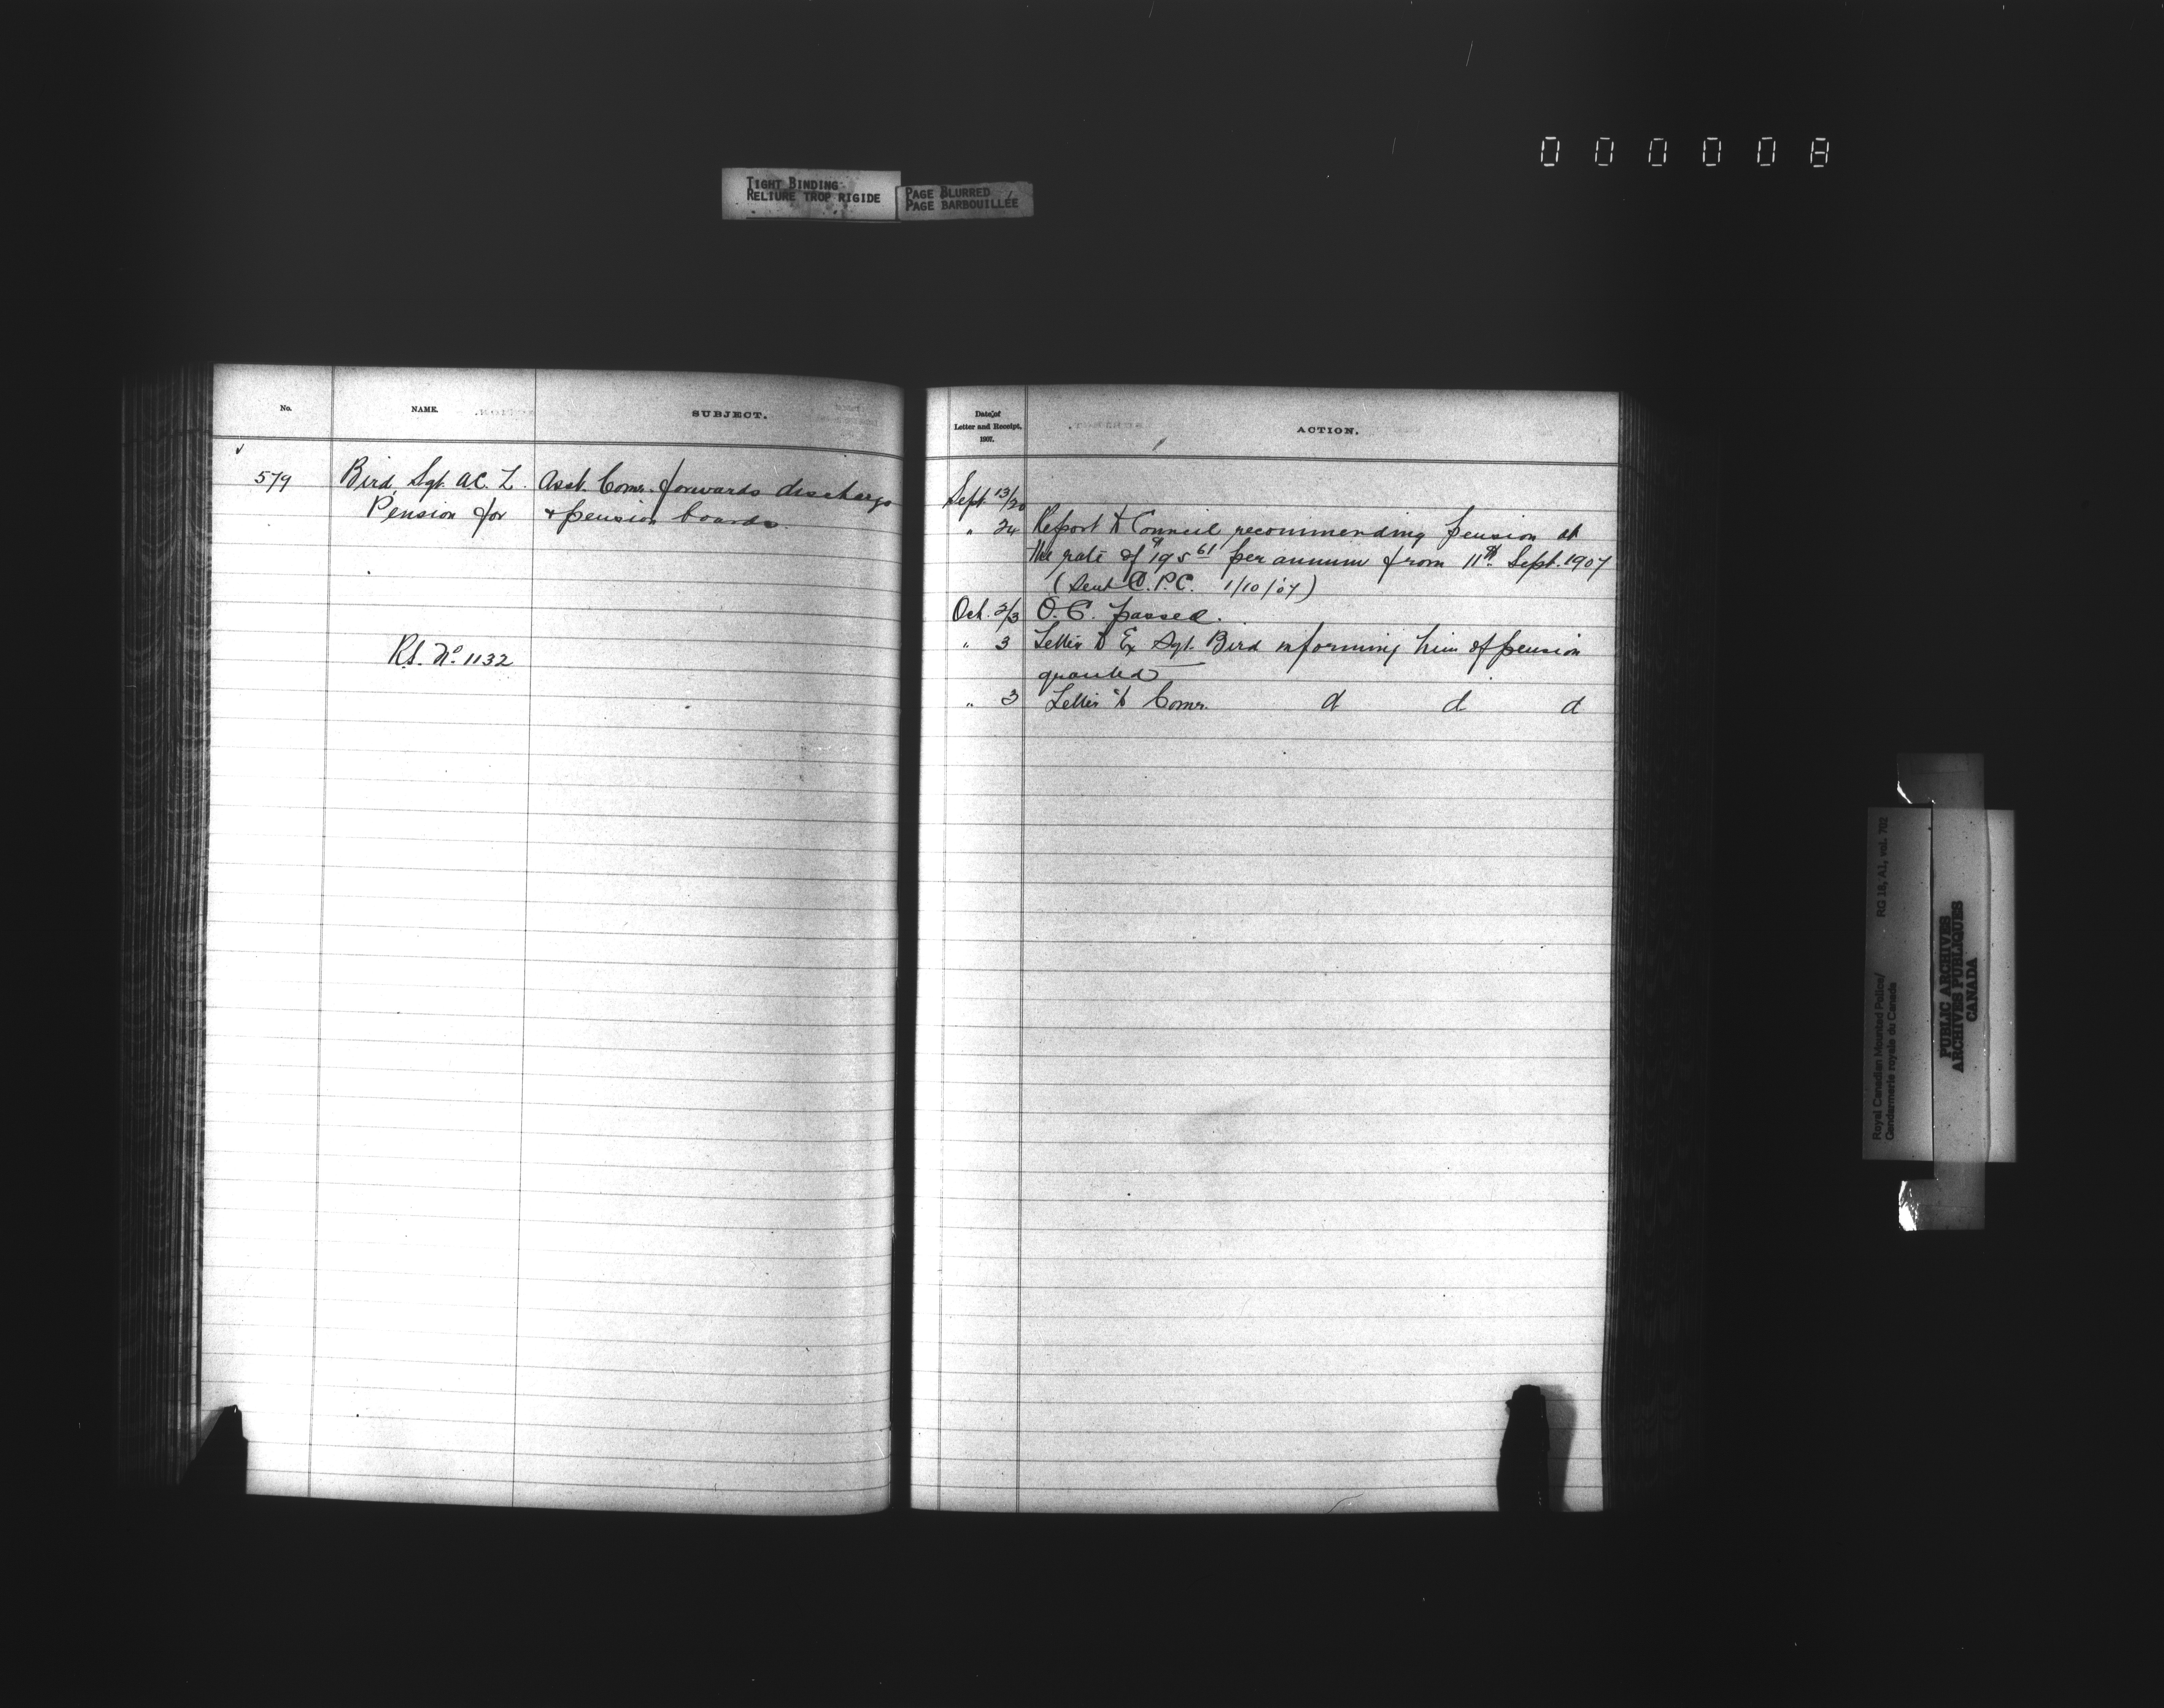 000008
TIGHT BINDING
RELIURE TROP RIGIDE
PAGE BLURRED
PAGE BARBOUILLÉE
No.
NAME.
SUBJECT.
579
Bird, Sgt. A.C. L.
Pension for
Asst. Comr. forwards discharge
& pension boards.
R.S. No. 1132
Date of
Letter and Receipt.
1907.
ACTION.
Sept 13/20
" 24 Report to Council recommending pension at
the rate of $195 61 per annum from 11th Sept. 1907
(Sent C.P.C. 1/10/07)
Oct. 2/3 O.C. passed.
" 3 Letter to Ex Sgt. Bird informing him of pension
granted
" 3 Letter to Comr. d d d
Royal Canadian Mounted Police/
Gendarmerie royale du Canada
RG 18, A1, vol. 702
PUBLIC ARCHIVES
ARCHIVES PUBLIQUES
CANADA